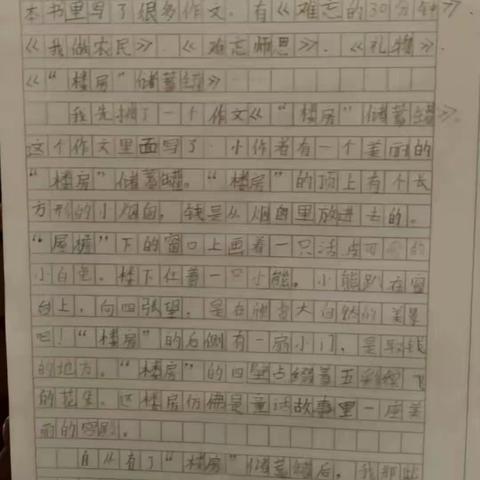 本书里写了很多作文。有《难忘的30分钟》.
《我做农民》.《难忘师恩》.《礼物》.
《“楼房”储蓄罐》
我先摘了一个作文《“楼房”储蓄罐》。
这个作文里面写了.小作者有一个美丽的
“楼房”储蓄罐。“楼房”的顶上有个长
方形的小烟囱，钱是从烟囱里放进去的。
“屋檐”下的窗口上画着一只活皮可爱的
小白兔。楼下住着一只小熊，小熊趴在窗
台上，向四张望，是在欣赏大自然的美景
吧！“楼房”的右侧有一扇小门，是取钱
的地方。“楼房”的四壁点缀着五彩缤飞
的花朵。这楼房仿佛是童话故事里一座美
丽的宫殿。
自从有了“楼房”储蓄罐后，我那些